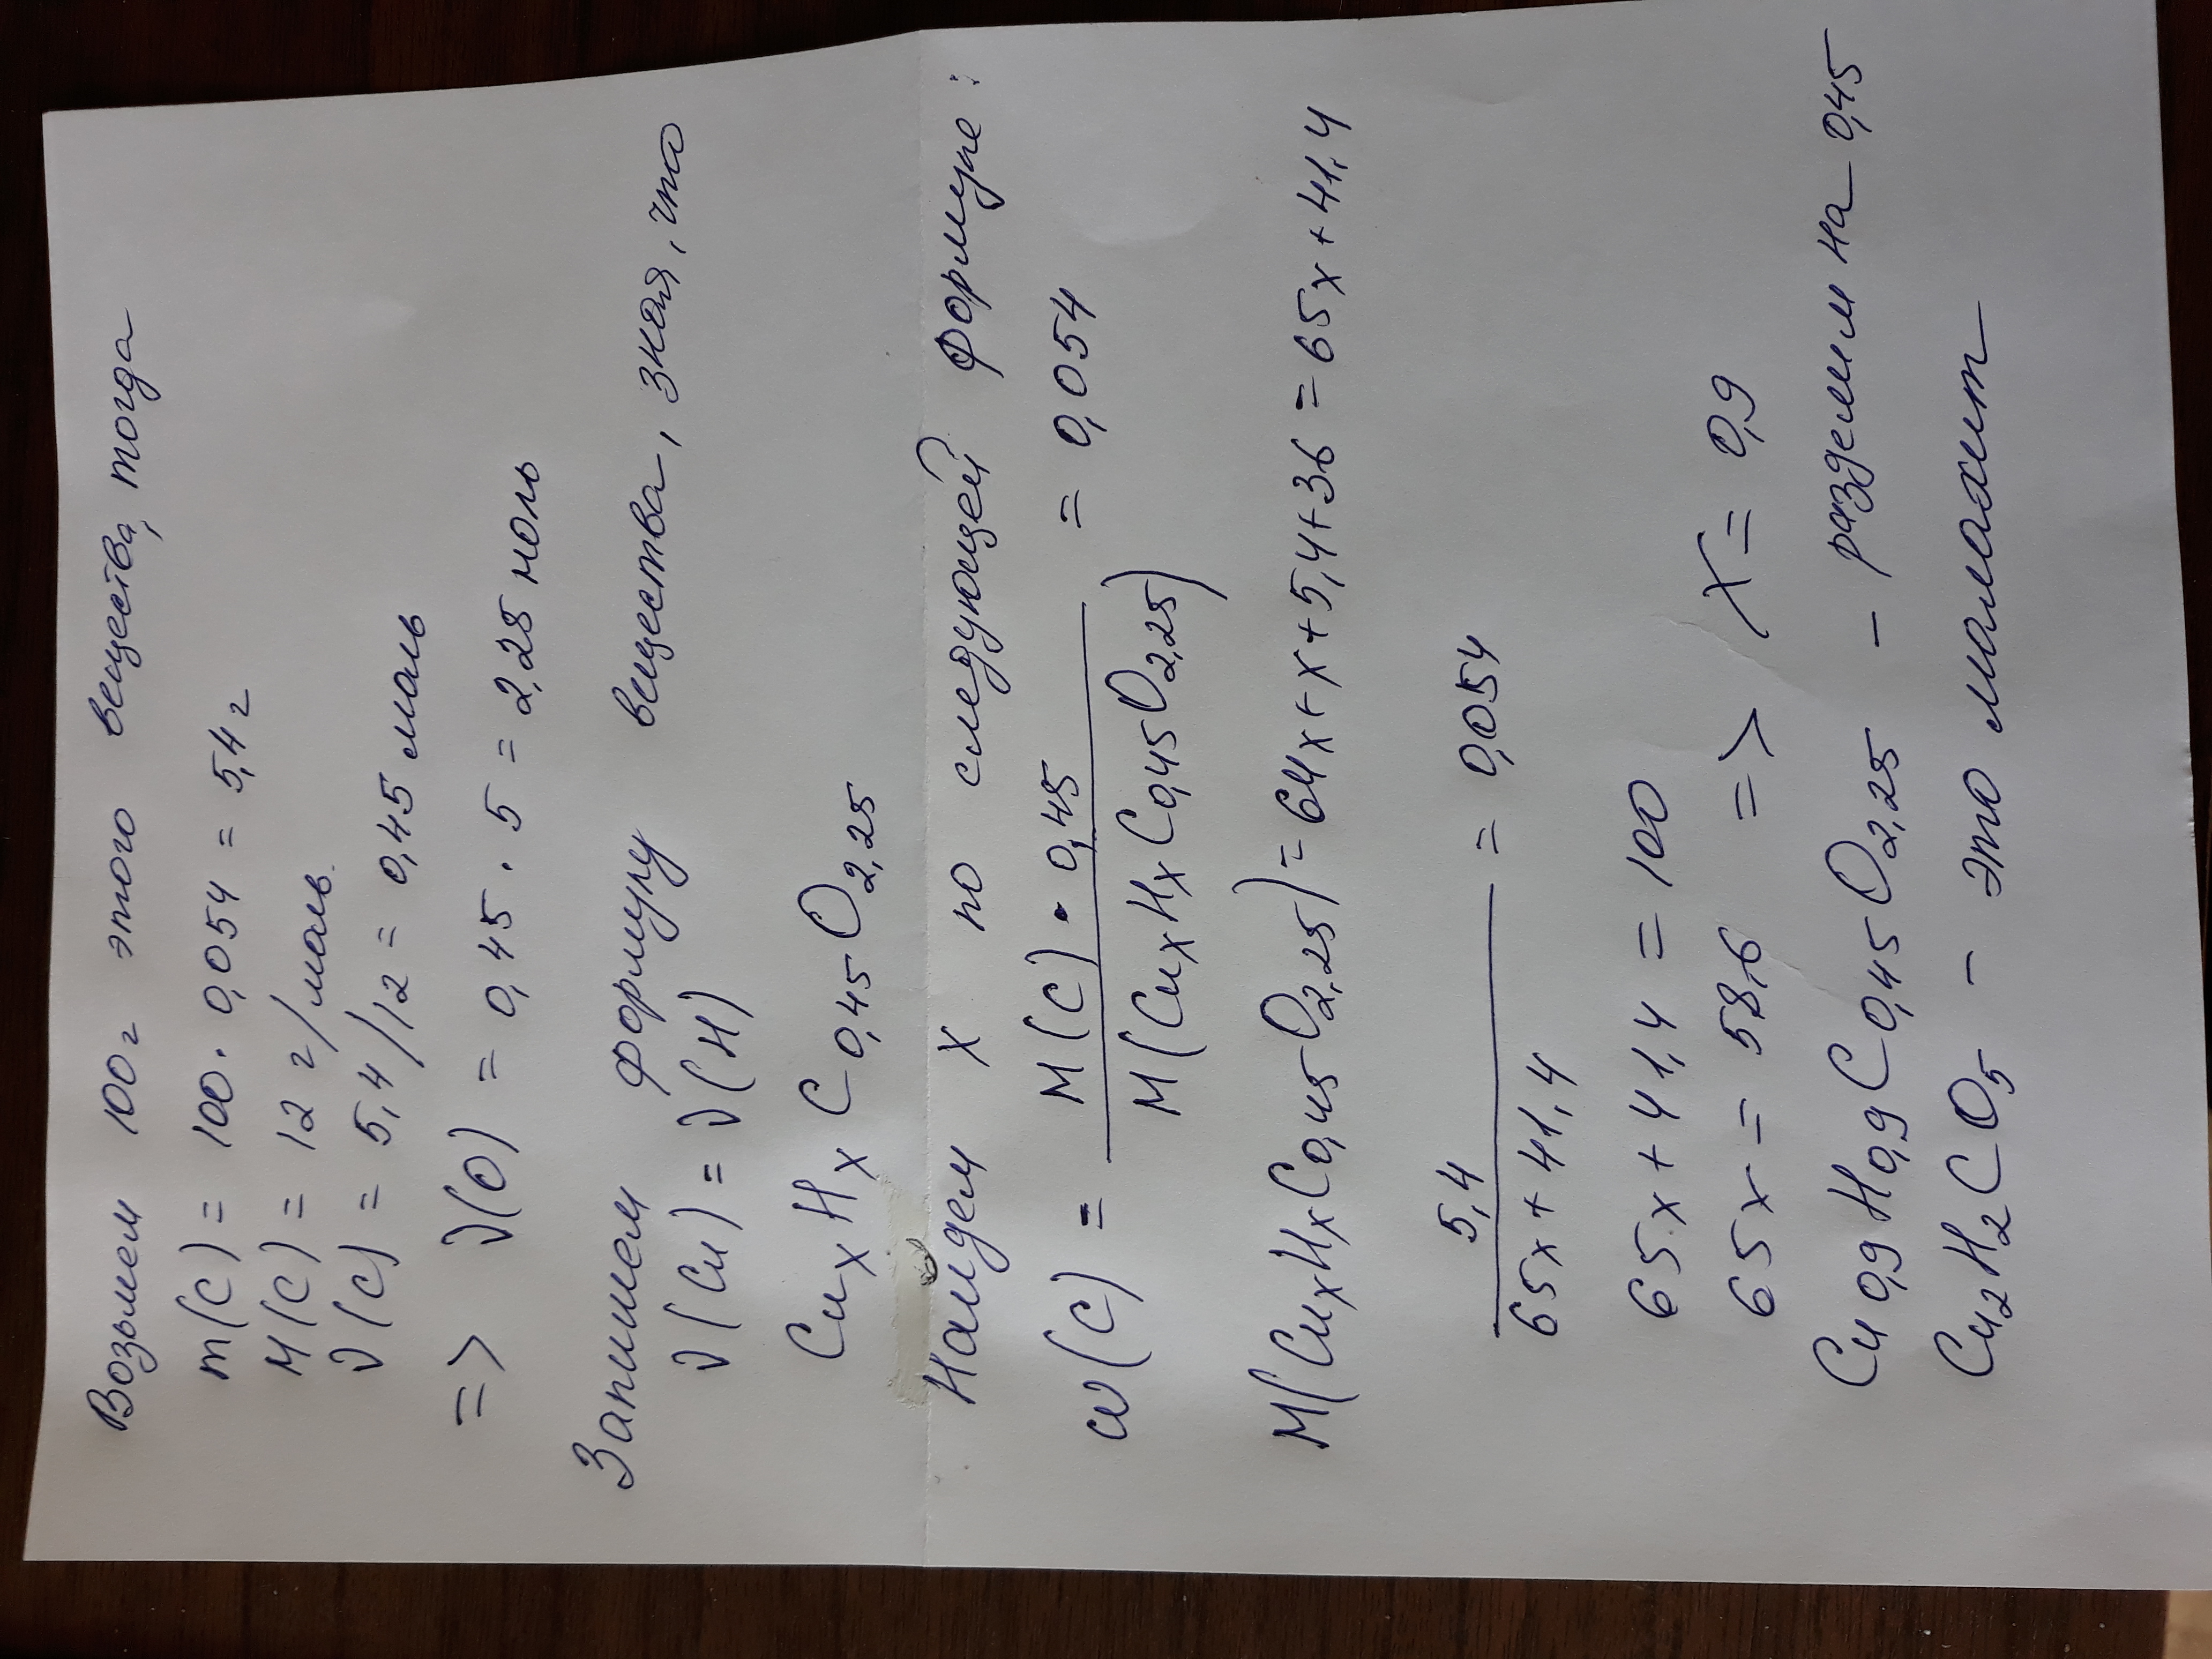 Возьмем 100г этого вещества, тогда
m(C) = 100 · 0,054 = 5,4 г
M(C) = 12 г/моль
ν(C) = 5,4/12 = 0,45 моль
=> ν(O) = 0,45 · 5 = 2,25 моль
Запишем формулу вещества, зная, что
ν(Cu) = ν(H)
CuxHxC0,45O2,25
Найдем x по следующей формуле:
ω(C) = M(C) · 0,45 / M(CuxHxC0,45O2,25) = 0,054
M(CuxHxC0,45O2,25) = 64x + x + 5,4 + 36 = 65x + 41,4
5,4 / 65x + 41,4 = 0,054
65x + 41,4 = 100
65x = 58,6 => x = 0,9
Cu0,9H0,9C0,45O2,25 – разделим на 0,45
Cu2H2CO5 – это малахит